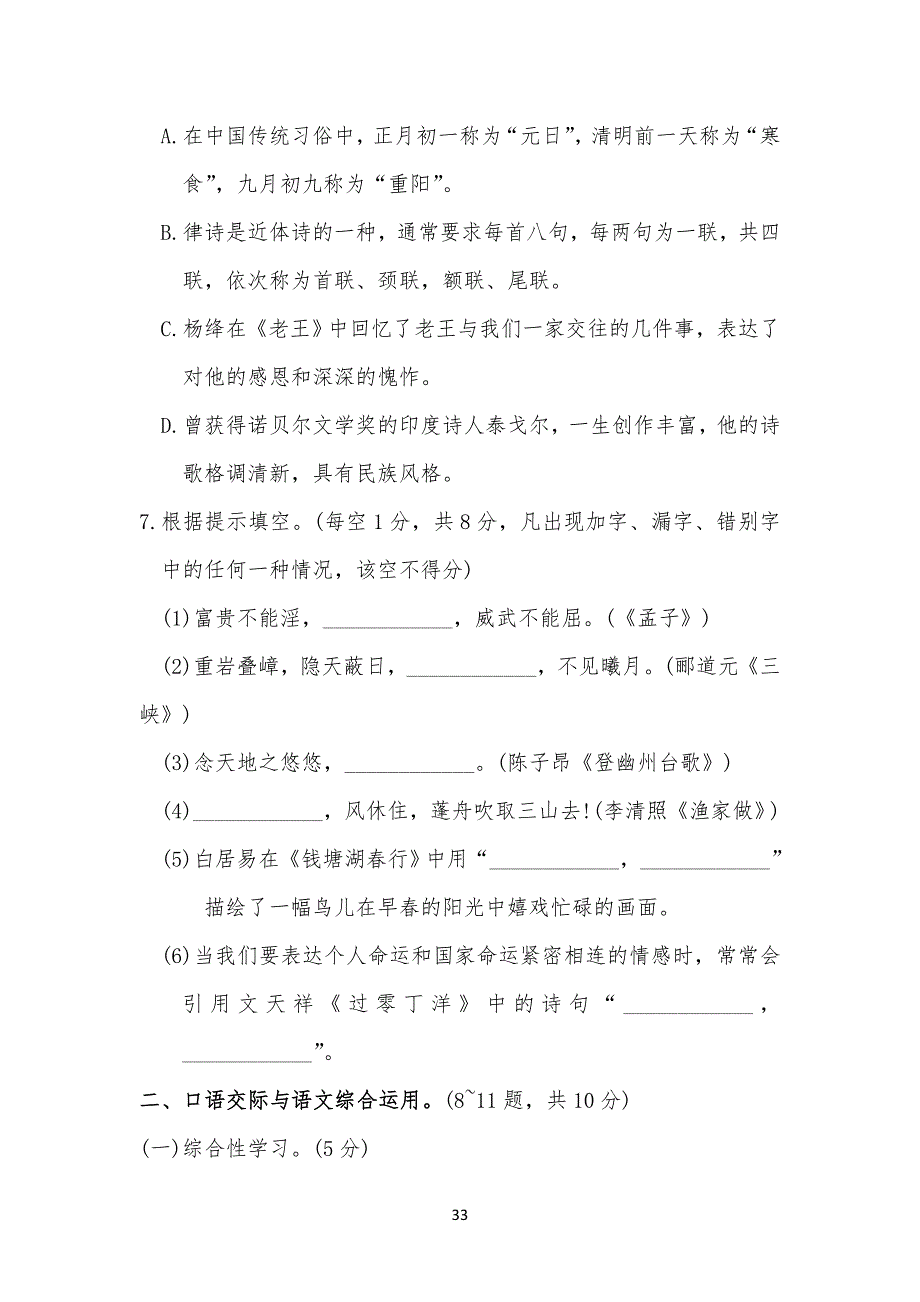 A.在中国传统习俗中，正月初一称为“元日”，清明前一天称为“寒
食”，九月初九称为“重阳”。
B.律诗是近体诗的一种，通常要求每首八句，每两句为一联，共四
联，依次称为首联、颈联，额联、尾联。
C.杨绛在《老王》中回忆了老王与我们一家交往的几件事，表达了
对他的感恩和深深的愧怍。
D.曾获得诺贝尔文学奖的印度诗人泰戈尔，一生创作丰富，他的诗
歌格调清新，具有民族风格。
7.根据提示填空。(每空1分，共8分，凡出现加字、漏字、错别字
中的任何一种情况，该空不得分)
(1)富贵不能淫，____________，威武不能屈。(《孟子》)
(2)重岩叠嶂，隐天蔽日，____________，不见曦月。(郦道元《三
峡》)
(3)念天地之悠悠，____________。(陈子昂《登幽州台歌》)
(4)____________，风休住，蓬舟吹取三山去!(李清照《渔家做》)
(5)白居易在《钱塘湖春行》中用“____________，____________”
描绘了一幅鸟儿在早春的阳光中嬉戏忙碌的画面。
(6)当我们要表达个人命运和国家命运紧密相连的情感时，常常会
引用文天祥《过零丁洋》中的诗句“____________，
____________”。
二、口语交际与语文综合运用。(8~11题，共10分)
(一)综合性学习。(5分)
33